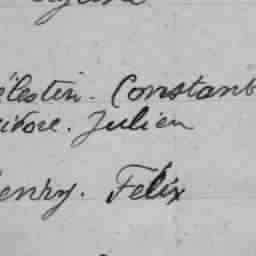 élestin. Constant
sidore. Julien
enry. Felix